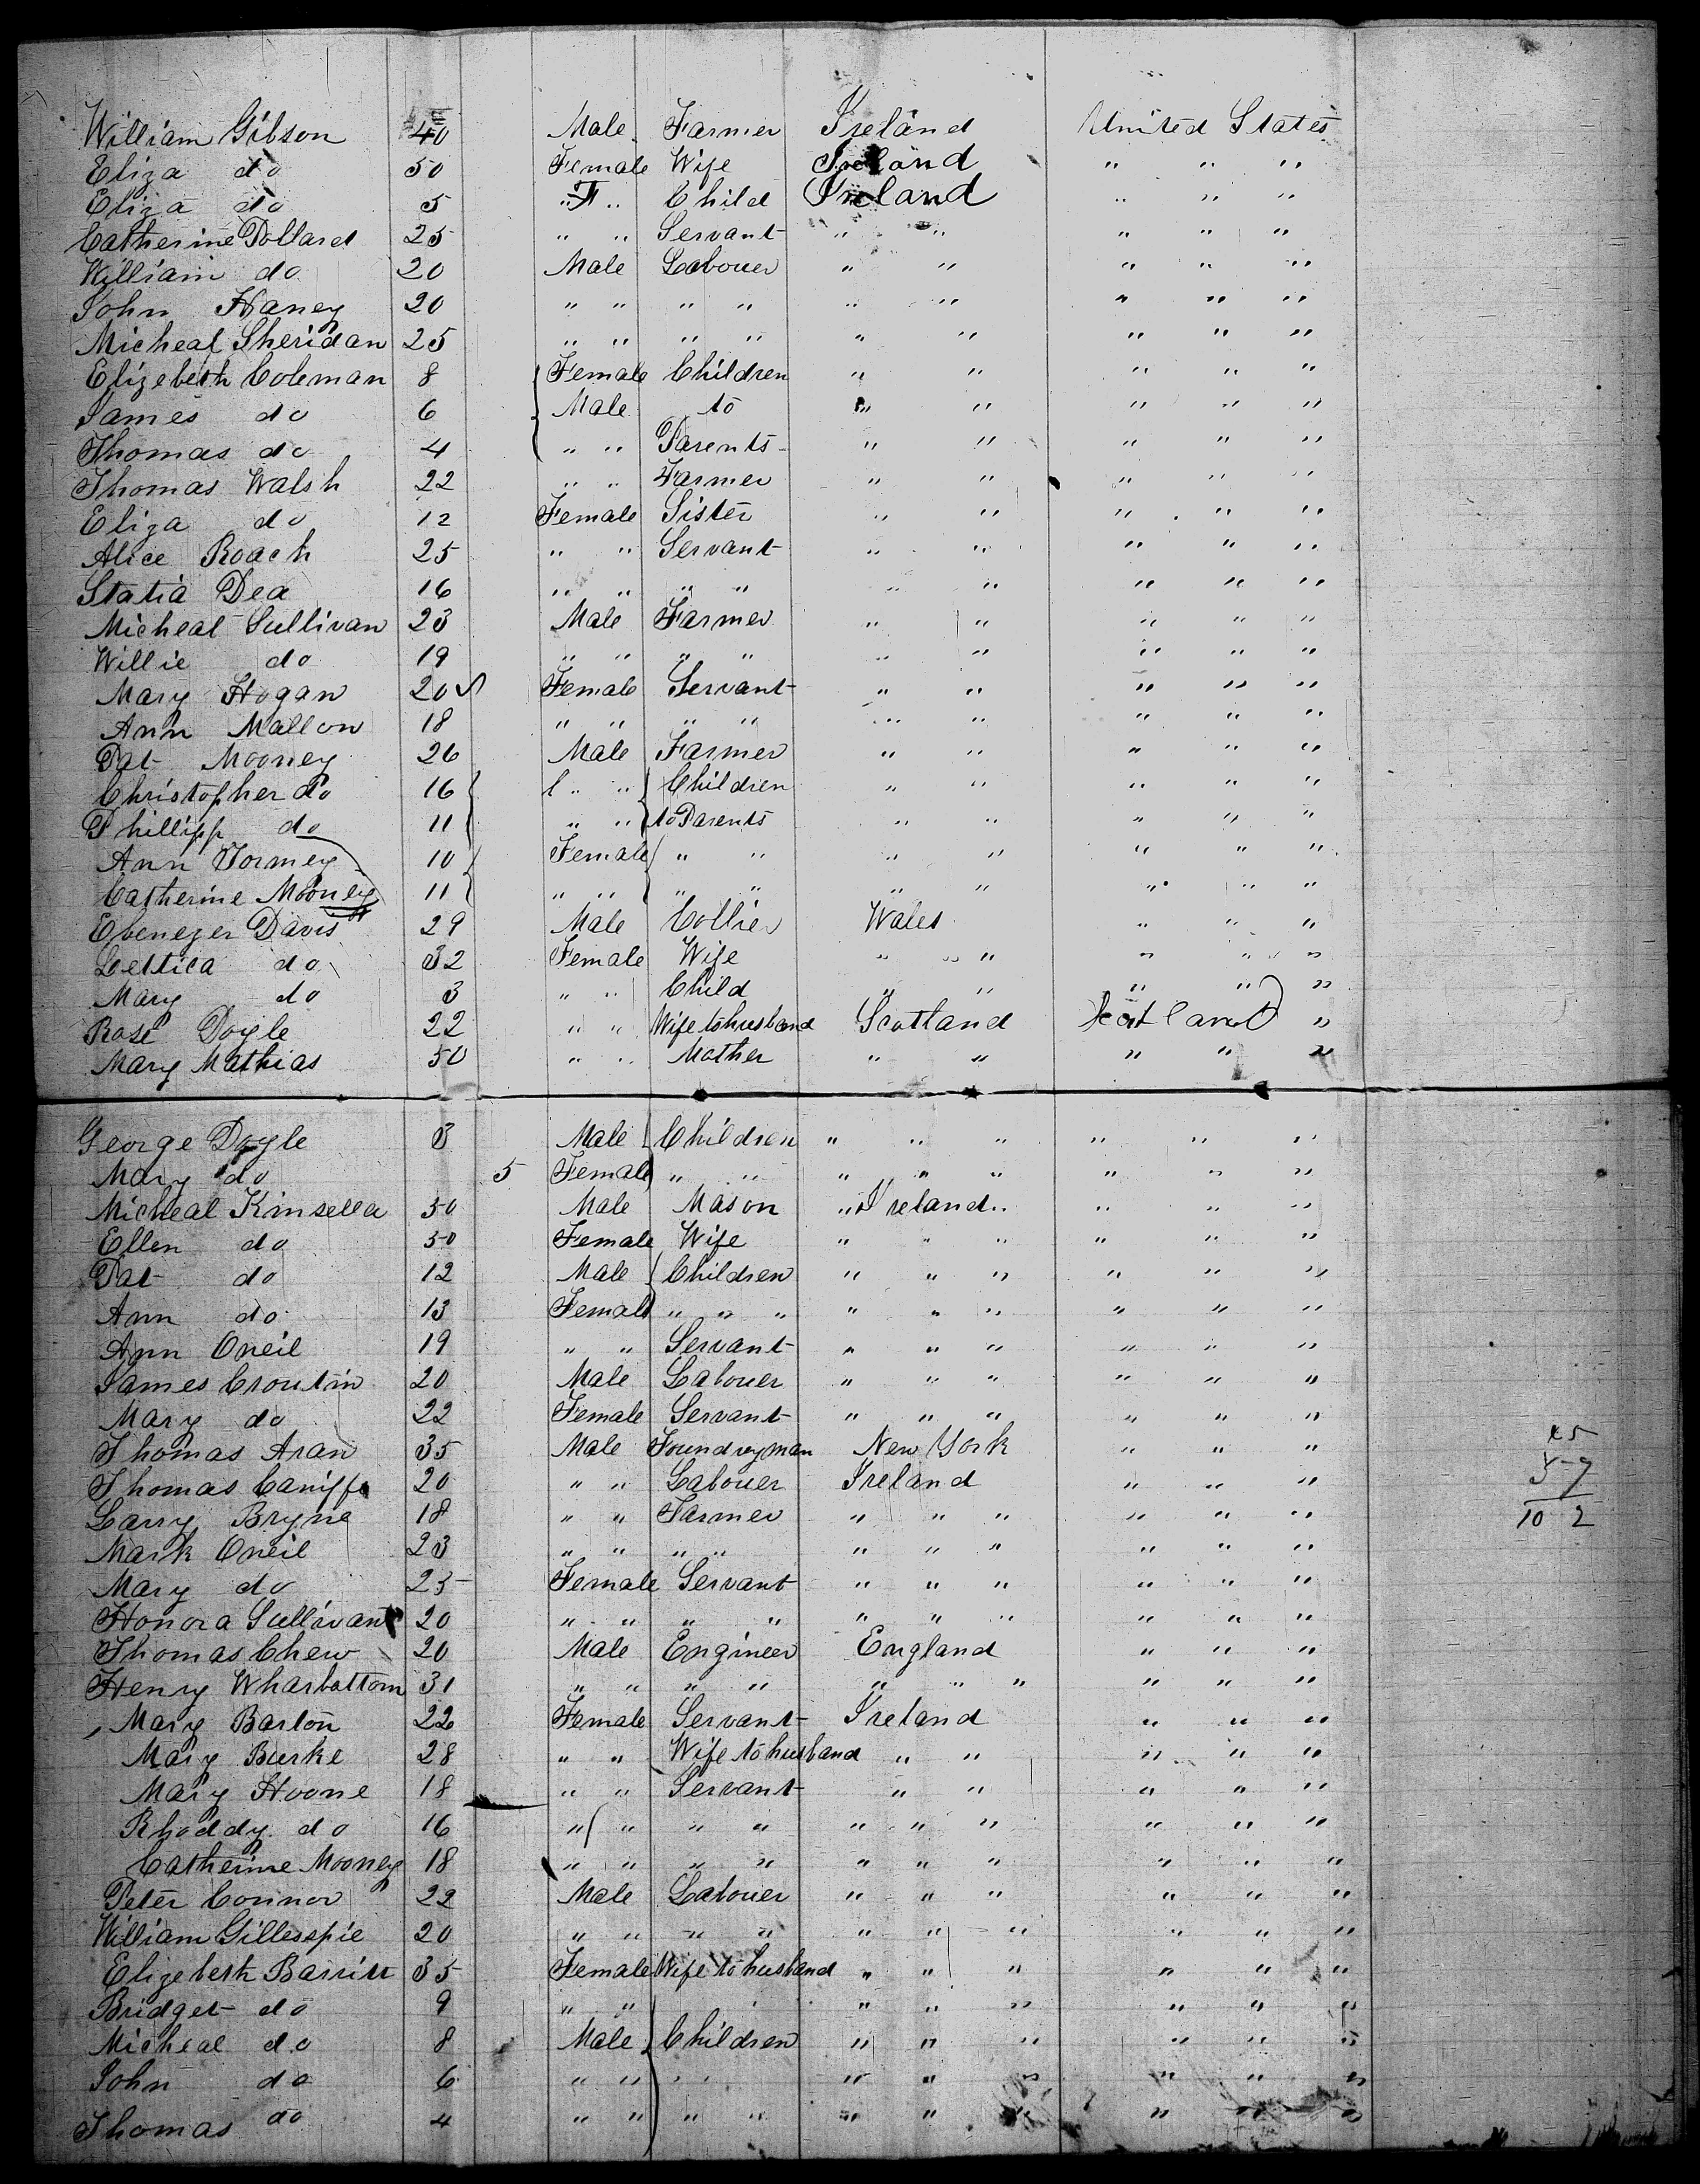 William Gibson 40 Male Farmer Ireland United States
Eliza do 50 Female Wife Ireland " " "
Eliza do 5 " F " Child Ireland " " "
Catherine Pollard 25 " " Servant " " " " "
William do 20 Male Labouer " " " " "
John Haney 20 " " " " " " " " "
Micheal Sheridan 25 " " " " " " " " "
Elizebeth Coleman 8 Female Children " " " " "
James do 6 Male to " " " " "
Thomas do 4 " " Parents " " " " "
Thomas Walsh 22 " " Farmer " " " " "
Eliza do 12 Female Sister " " " " "
Alice Roach 25 " " Servant " " " " "
Statia Dea 16 " " " " " " " " "
Micheal Sullivan 23 Male Farmer " " " " "
Willie do 19 " " " " " " " " "
Mary Hogan 20 Female Servant " " " " "
Ann Mallon 18 " " " " " " " " "
Pat Mooney 26 Male Farmer " " " " "
Christopher do 16 " " Children " " " " "
Phillipp do 11 " " to Parents " " " " "
Ann Tormey 10 Female " " " " " " "
Catherine Mooney 11 " " " " " " " " "
Ebenezer Davis 29 Male Collier Wales " " "
Lettica do 32 Female Wife " " " " " "
Mary do 3 " " Child " " " " "
Rose Doyle 22 " " Wife to husband Scotland Scotland "
Mary Mathias 50 " " Mother " " " " "
George Doyle 3 Male Children " " " " " "
Mary do 5 Female " " " " " " " "
Micheal Kinsella 50 Male Mason " Ireland " " " "
Ellen do 50 Female Wife " " " " " "
Pat do 12 Male Children " " " " " "
Ann do 13 Female " " " " " " " " "
Ann Oneil 19 " " Servant " " " " " "
James Croutin 20 Male Labouer " " " " " "
Mary do 22 Female Servant " " " " " "
Thomas Aran 35 Male Foundryman New York " " "
Thomas Caniffe 20 " " Labouer Ireland " " " 57
Larry Bryne 18 " " Farmer " " " " " " 10 2
Mark Oneil 23 " " " " " " " " " "
Mary do 25 Female Servant " " " " " "
Honora Sullivan 20 " " " " " " " " " "
Thomas Chew 20 Male Engineer England " " "
Henry Wharbattom 31 " " " " " " " " " "
Mary Barton 22 Female Servant Ireland " " "
Mary Burke 28 " " Wife to husband " " " " "
Mary Hoone 18 " " Servant " " " " "
Rhoddy do 16 " " " " " " " " " "
Catherine Mooney 18 " " " " " " " " " "
Peter Connor 22 Male Labouer " " " " " "
William Gillesspie 20 " " " " " " " " " "
Elizebeth Barritt 35 Female Wife to husband " " " " " "
Bridget do 9 " " " " " " " "
Micheal do 8 Male Children " " " " " "
John do 6 " " " " " " " " " "
Thomas do 4 " " " " " " " " " "